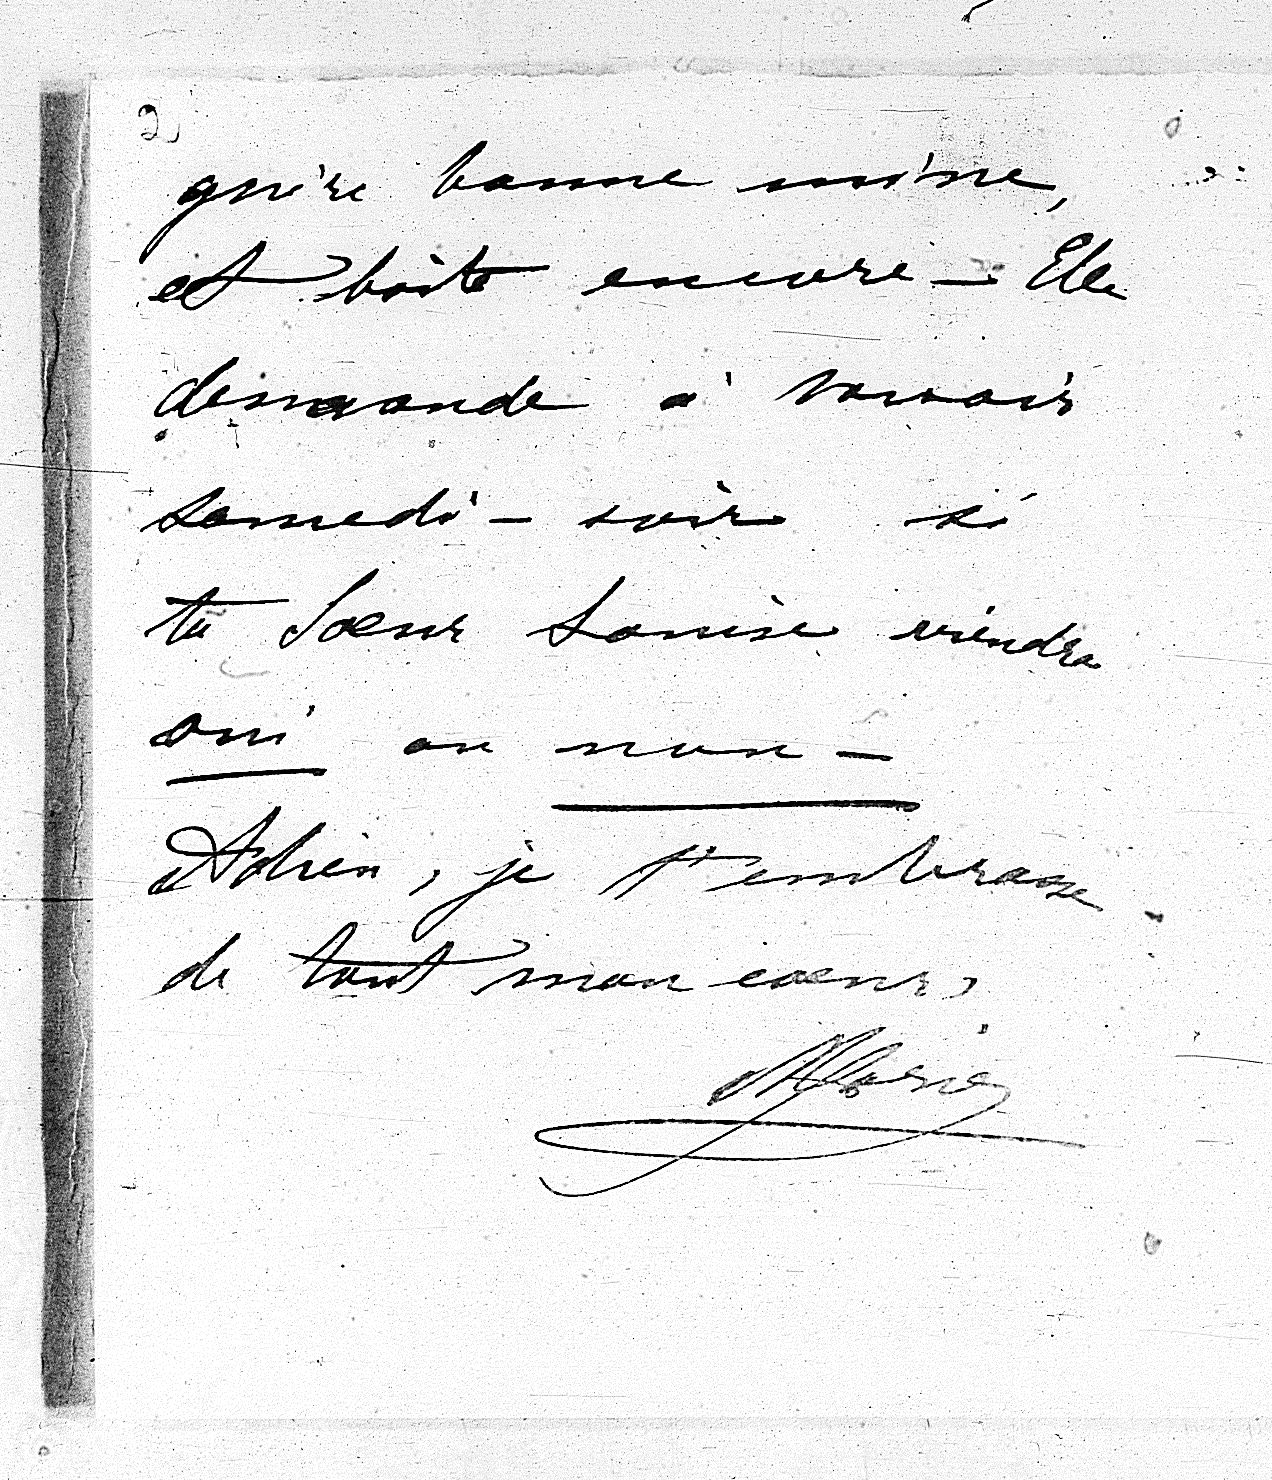 2)
guère bonne mine,
et boite encore — Elle
demande à savoir
samedi - soir si
ta Soeur Louise viendra
oui ou non —
Adrien, je t'embrasse
de tout mon coeur,